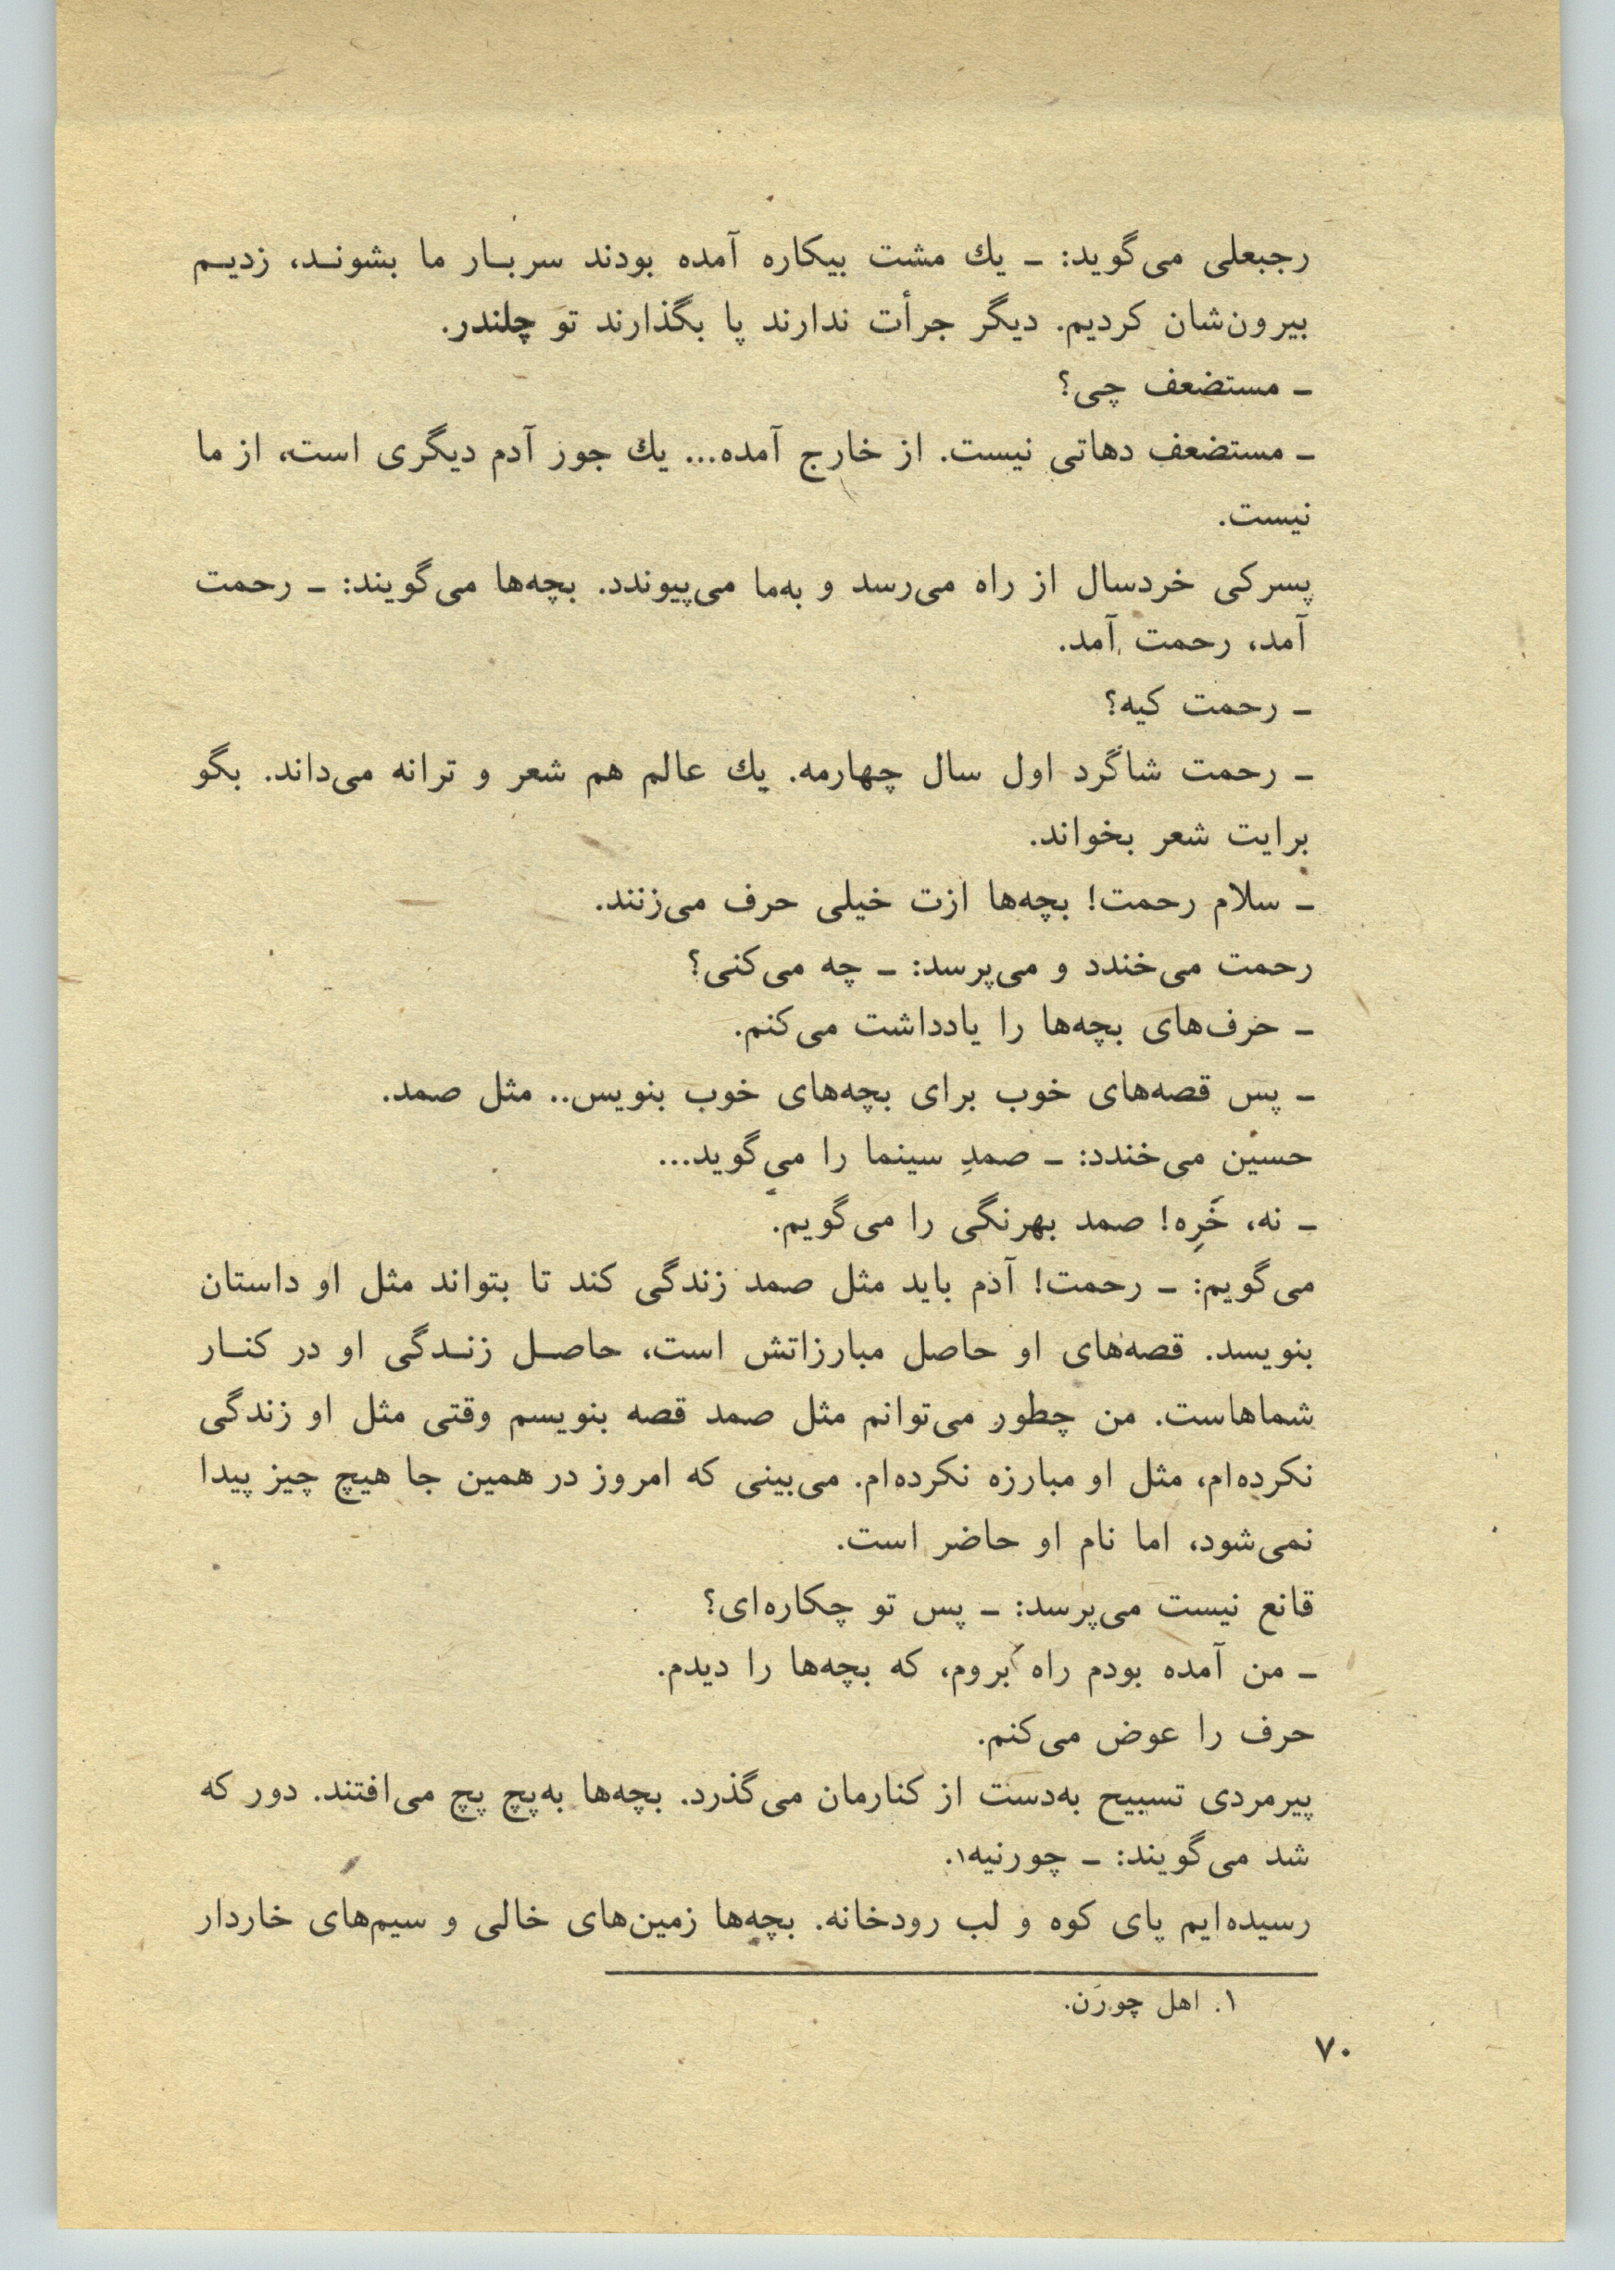 رجبعلی می‌گوید: ـ یك مشت بیکاره آمده بودند سربـار ما بشونـد، زدیـم
بیرون‌شان کردیم. دیگر جرأت ندارند پا بگذارند تو چلندر.
ـ مستضعف چی؟
ـ مستضعف دهاتی نیست. از خارج آمده... یك جور آدم دیگری است، از ما
نیست.
پسرکی خردسال از راه می‌رسد و به‌ما می‌پیوندد. بچه‌ها می‌گویند: ـ رحمت
آمد، رحمت آمد.
ـ رحمت کیه؟
ـ رحمت شاگرد اول سال چهارمه. یك عالم هم شعر و ترانه می‌داند. بگو
برایت شعر بخواند.
ـ سلام رحمت! بچه‌ها ازت خیلی حرف می‌زنند.
رحمت می‌خندد و می‌پرسد: ـ چه می‌کنی؟
ـ حرف‌های بچه‌ها را یادداشت می‌کنم.
ـ پس قصه‌های خوب برای بچه‌های خوب بنویس.. مثل صمد.
حسین می‌خندد: ـ صمدِ سینما را می‌گوید...
ـ نه، خَرِه! صمد بهرنگی را می‌گویم.
می‌گویم: ـ رحمت! آدم باید مثل صمد زندگی کند تا بتواند مثل او داستان
بنویسد. قصه‌های او حاصل مبارزاتش است، حاصـل زنـدگی او در کنـار
شماهاست. من چطور می‌توانم مثل صمد قصه بنویسم وقتی مثل او زندگی
نکرده‌ام، مثل او مبارزه نکرده‌ام. می‌بینی که امروز در همین جا هیچ چیز پیدا
نمی‌شود، اما نام او حاضر است.
قانع نیست می‌پرسد: ـ پس تو چکاره‌ای؟
ـ من آمده بودم راه بروم، که بچه‌ها را دیدم.
حرف را عوض می‌کنم.
پیرمردی تسبیح به‌دست از کنارمان می‌گذرد. بچه‌ها به‌پچ پچ می‌افتند. دور که
شد می‌گویند: ـ چورنیه۱.
رسیده‌ایم پای کوه و لب رودخانه. بچه‌ها زمین‌های خالی و سیم‌های خاردار
۱. اهل چورَن.
۷۰